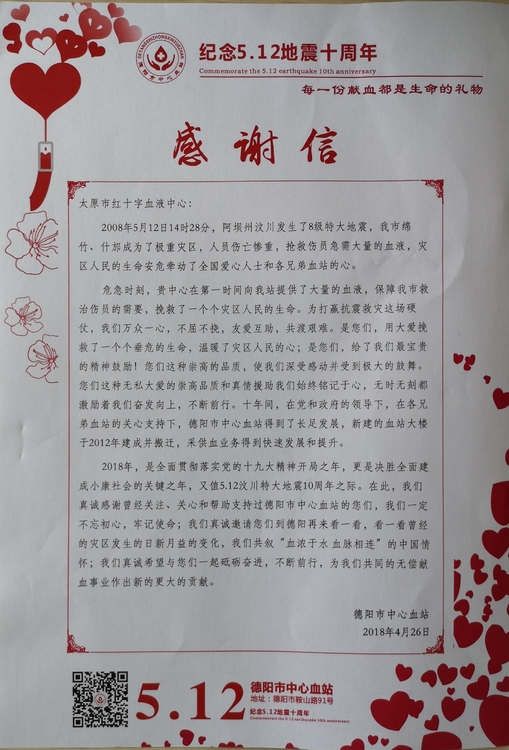 纪念5.12地震十周年
Commemorate the 5.12 earthquake 10th anniversary
每一份献血都是生命的礼物
感谢信
太原市红十字血液中心：
2008年5月12日14时28分，阿坝州汶川发生了8级特大地震，我市绵
竹、什邡成为了极重灾区，人员伤亡惨重，抢救伤员急需大量的血液，灾
区人民的生命安危牵动了全国爱心人士和各兄弟血站的心。
危急时刻，贵中心在第一时间向我站提供了大量的血液，保障我市救
治伤员的需要，挽救了一个个灾区人民的生命。为打赢抗震救灾这场硬
仗，我们万众一心，不屈不挠，友爱互助，共渡艰难。是您们，用大爱挽
救了一个个垂危的生命，温暖了灾区人民的心；是您们，给了我们最宝贵
的精神鼓励！您们这种崇高的品质，使我们深受感动并受到极大的鼓舞。
您们这种无私大爱的崇高品质和真情援助我们始终铭记于心，无时无刻都
激励着我们奋发向上，不断前行。十年间，在党和政府的领导下，在各兄
弟血站的关心支持下，德阳市中心血站得到了长足发展，新建的血站大楼
于2012年建成并搬迁，采供血业务得到快速发展和提升。
2018年，是全面贯彻落实党的十九大精神开局之年，更是决胜全面建
成小康社会的关键之年，又值5.12汶川特大地震10周年之际。在此，我们
真诚感谢曾经关注、关心和帮助支持过德阳市中心血站的您们，我们一定
不忘初心，牢记使命；我们真诚邀请您们到德阳再来看一看，看一看曾经
的灾区发生的日新月益的变化，我们共叙“血浓于水 血脉相连”的中国情
怀；我们真诚希望与您们一起砥砺奋进，不断前行，为我们共同的无偿献
血事业作出新的更大的贡献。
德阳市中心血站
2018年4月26日
5.12
德阳市中心血站
地址：德阳市鞍山路91号
纪念5.12地震十周年
Commemorate the 5.12 earthquake 10th anniversary